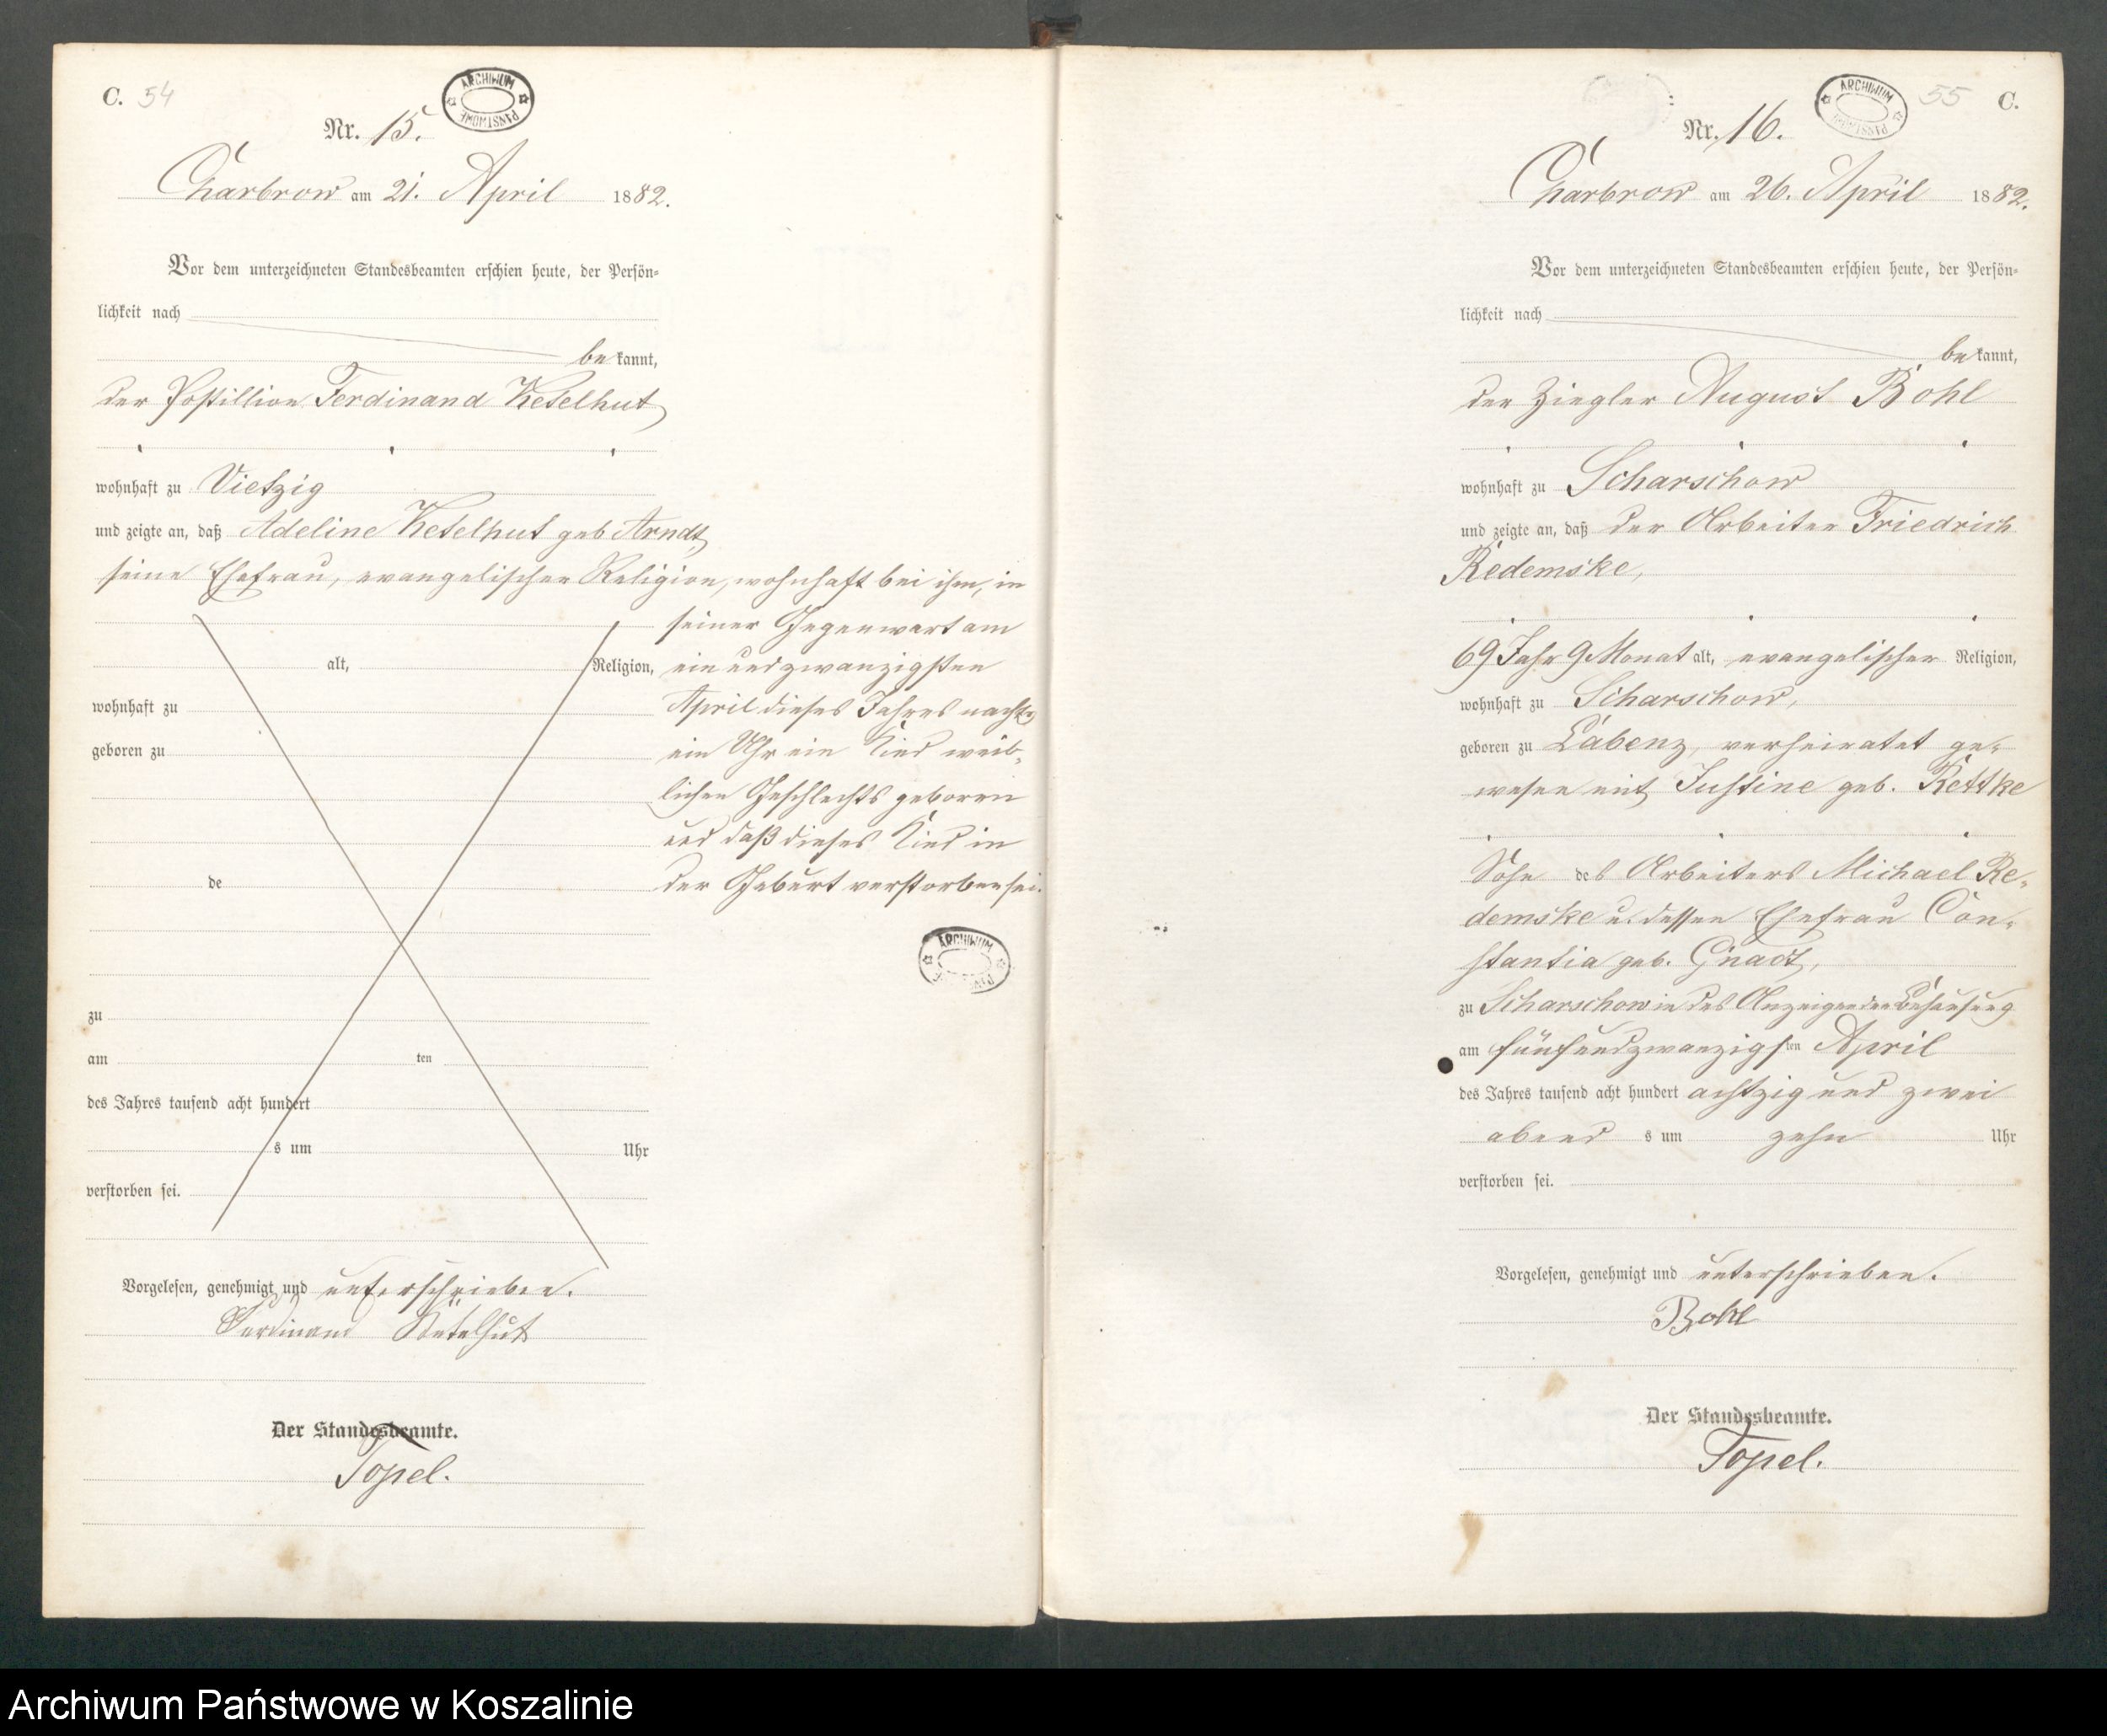 C. 54
ARCHIWUM PAŃSTWOWE
Nr. 15.
Charbrow am 21. April 1882.
Vor dem unterzeichneten Standesbeamten erschien heute, der Persön-
lichkeit nach
be kannt,
der Postillion Ferdinand Ketelhut
wohnhaft zu Vietzig
und zeigte an, daß Adeline Ketelhut geb Arndt,
seine Ehefrau, evangelischer Religion, wohnhaft bei ihm, in
seiner Gegenwart am
alt, Religion, ein und zwanzigsten
wohnhaft zu April dieses Jahres nachts
geboren zu ein Uhr ein Kind weib-
lichen Geschlechts geboren
und daß dieses Kind in
de der Geburt verstorben sei.
ARCHIWUM
zu
am ten
des Jahres tausend acht hundert
s um Uhr
verstorben sei.
Vorgelesen, genehmigt und unterschrieben.
Ferdinand Ketelhut
Der Standesbeamte.
Topel.
55 C.
ARCHIWUM PAŃSTWOWE
Nr. 16.
Charbrow am 26. April 1882.
Vor dem unterzeichneten Standesbeamten erschien heute, der Persön-
lichkeit nach
be kannt,
der Ziegler August Bohl
wohnhaft zu Scharschow
und zeigte an, daß der Arbeiter Friedrich
Redemske,
69 Jahr 9 Monat alt, evangelischer Religion,
wohnhaft zu Scharschow,
geboren zu Labenz, verheiratet ge-
wesen mit Justine geb. Rettke
Sohn des Arbeiters Michael Re-
demske u. dessen Ehefrau Con-
stantia geb. Gnadt,
zu Scharschow in des Anzeigenden Behausung
am fünfundzwanzigsten April
des Jahres tausend acht hundert achtzig und zwei
abend s um zehn Uhr
verstorben sei.
Vorgelesen, genehmigt und unterschrieben.
Bohl
Der Standesbeamte.
Topel.
Archiwum Państwowe w Koszalinie